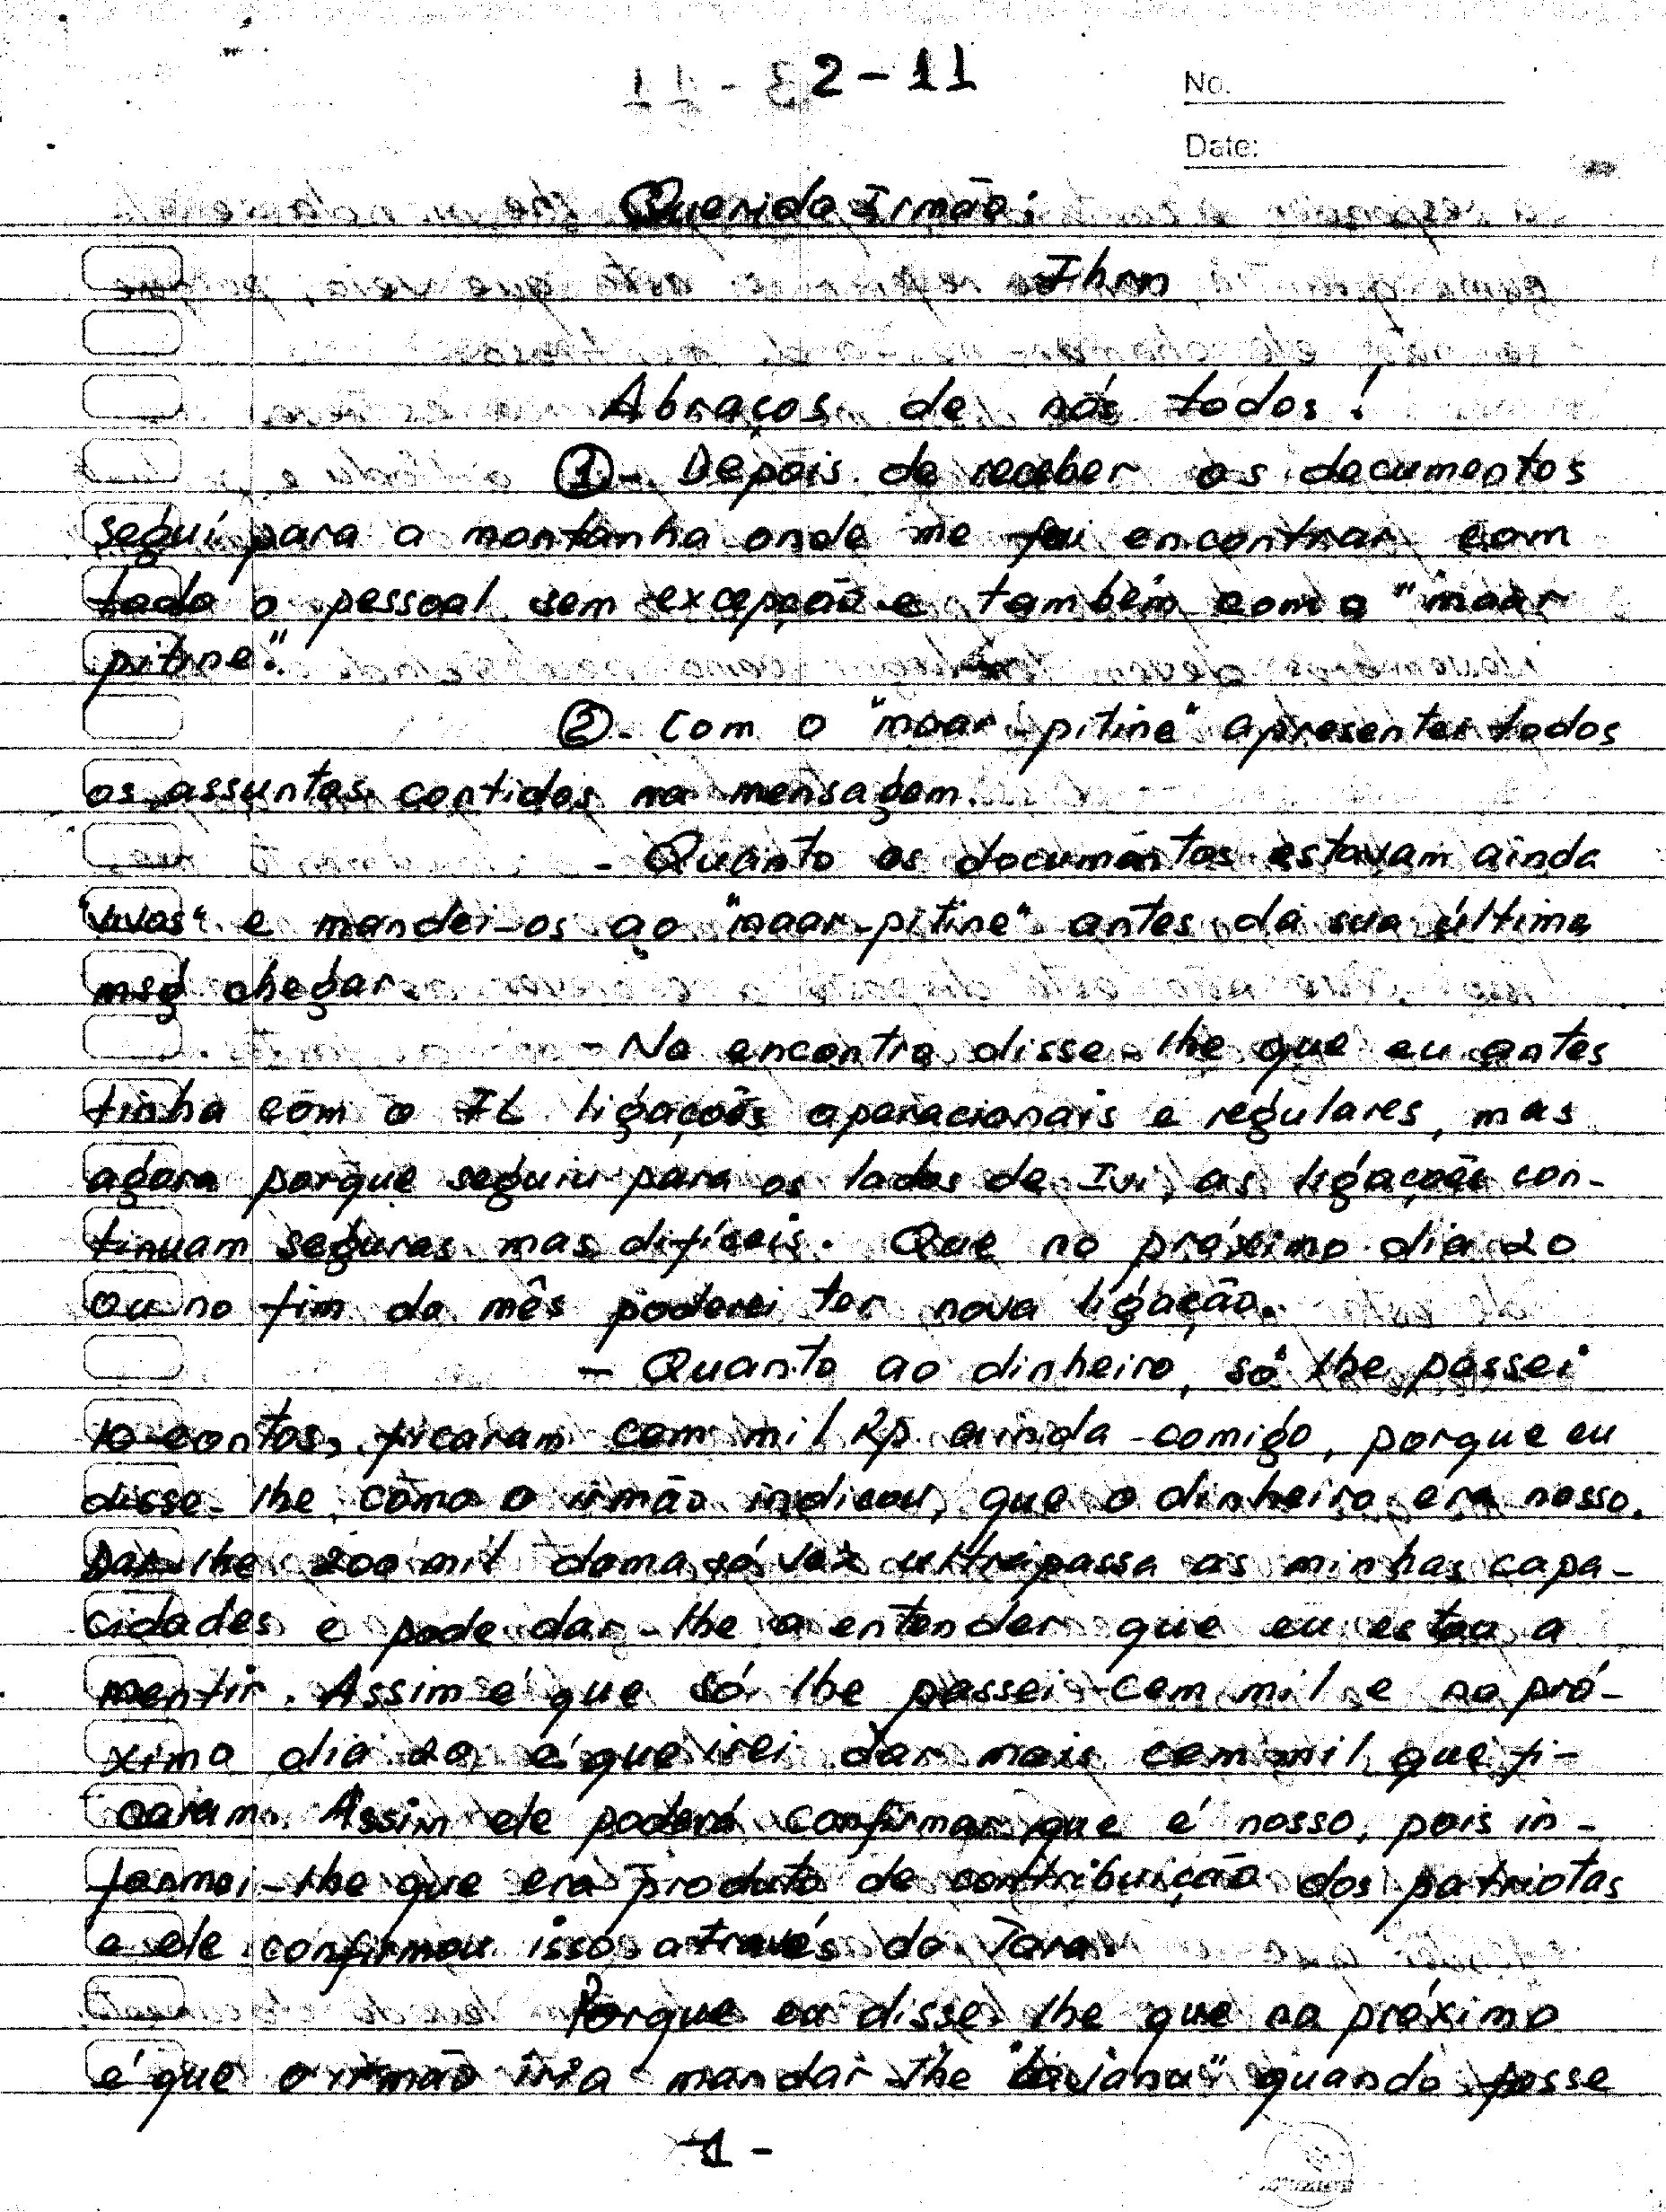 2-11
No.
Date:
Querido Irmão:
Ihrn
Abraços de nós todos!
①- Depois de receber os documentos
seguí para a montanha onde me fui encontrar com
todo o pessoal sem excepção e também com o "maar
pitine."
②- Com o "maar-pitine" apresentei todos
os assuntos contidos na mensagem.
- Quanto os documentos estavam ainda
"vivos" e mandei-os ao "maar-pitine" antes da sua última
msg chegar.
- No encontro disse-lhe que eu antes
tinha com o IL ligações operacionais e regulares, mas
agora porque seguiu para os lados de Ivi, as ligações con-
tinuam seguras mas difíceis. Que no próximo dia 20
ou no fim do mês poderei ter nova ligação.
- Quanto ao dinheiro, só lhe passei
10 contos, ficaram cem mil Rp ainda comigo, porque eu
disse-lhe, como o irmão indicou, que o dinheiro era nosso.
Dar-lhe 200 mil duma só vez ultrapassa as minhas capa-
cidades e pode dar-lhe a entender que eu estou a
mentir. Assim é que só lhe passei cem mil e no pró-
ximo dia 20 é que irei dar mais cem mil que fi-
caram. Assim ele poderá confirmar que é nosso, pois in-
formei-lhe que era produto de contribuição dos patriotas
e ele confirmou isso através do Tara.
Porque eu disse-lhe que no próximo
é que o irmão iria mandar-lhe quando fosse
-1-